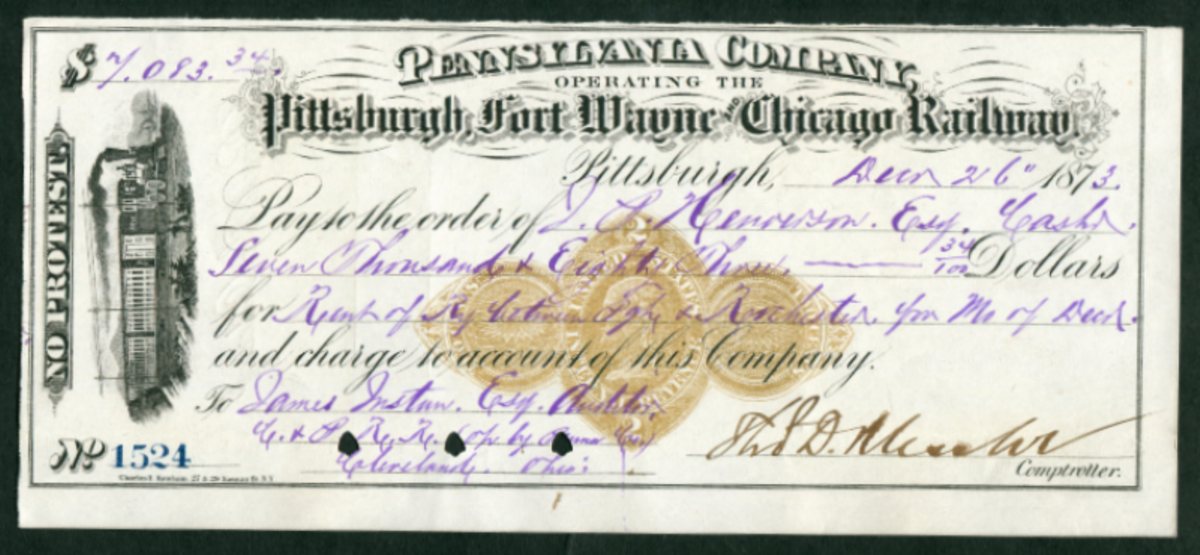 $ 7,083.34
PENNSYLVANIA COMPANY,
OPERATING THE
Pittsburgh, Fort Wayne AND Chicago Railway.
NO PROTEST.
Pittsburgh, Decr 26" 1873.
Pay to the order of Henderson. Esq. Cashr.
Seven Thousand & Eighty Three. 34/100 Dollars
for Rent of Ry between Pgh & Rochester for Mo of Decr.
and charge to account of this Company.
To James Esq. Auditor,
C. & P. R. R. Op. by Penna Co.
Cleveland. Ohio.
Thos D. Messler
Comptroller.
No 1524